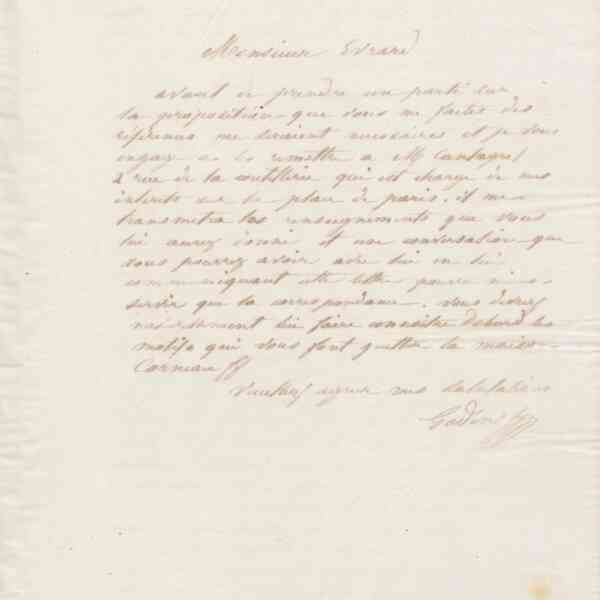 Monsieur Evrard
avant de prendre un parti sur
la proposition que vous me faites des
références me seraient nécessaires et je vous
engage a les remettre a M Cantagrel
2 rue de la coutellerie qui est chargé de mes
intérêts sur la place de paris. il me
transmettra les renseignements que vous
lui aurez donné et une conversation que
vous pourrez avoir avec lui en lui
communiquant cette lettre pourra mieux
servir que la correspondance. vous devrez
nécessairement lui faire connaitre dabord les
motifs qui vous font quitter la maison
Corneau ff
Veuillez agréer mes salutations
Godin